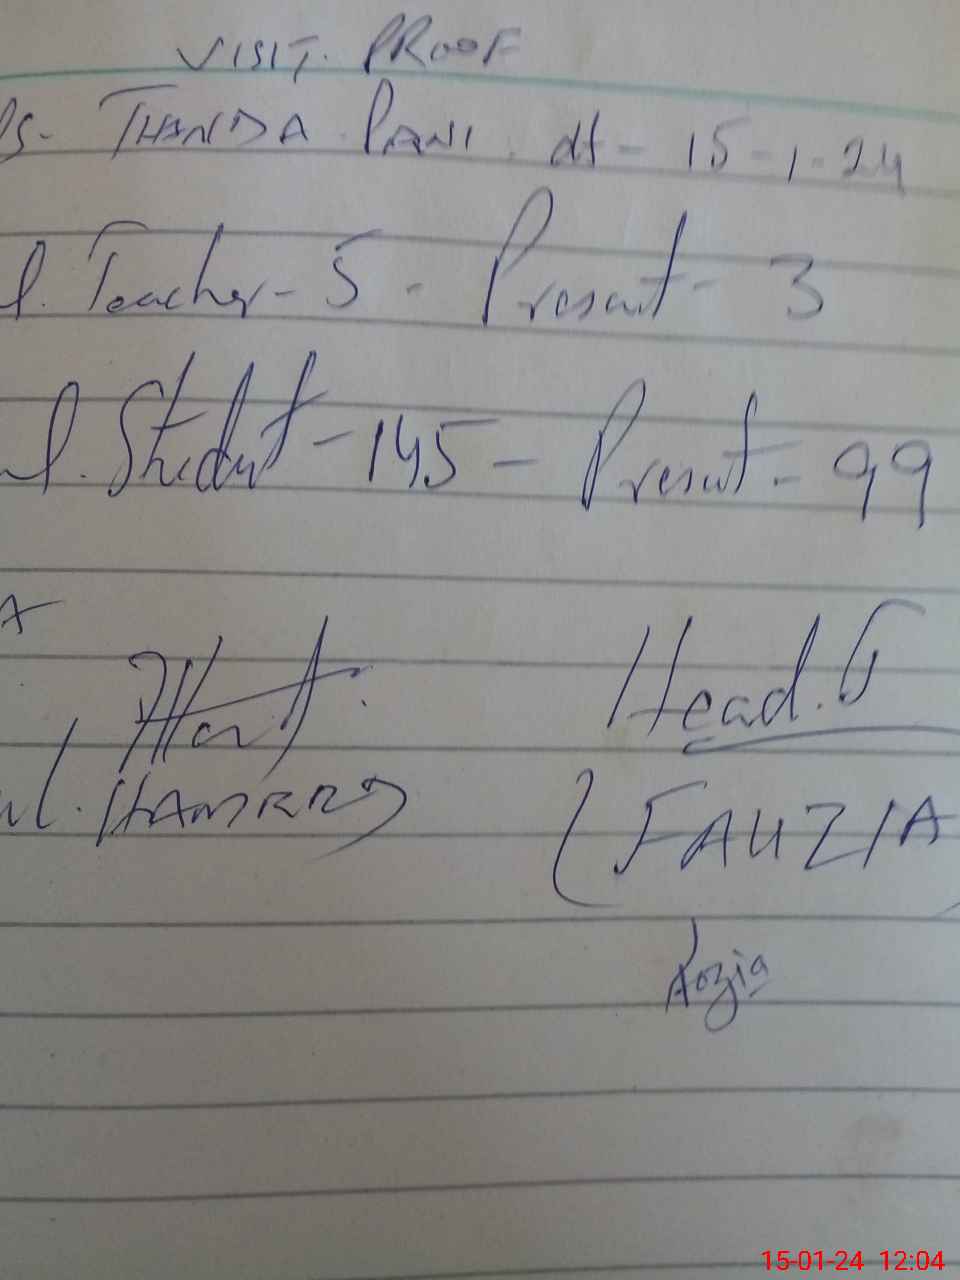 VISIT. PROOF
PS- THANDA PANI. dt- 15-1-24
l. Teacher-5 - Present- 3
l. Student-145 - Present-99
Head.T
(FAUZIA
Fozia
15-01-24 12:04